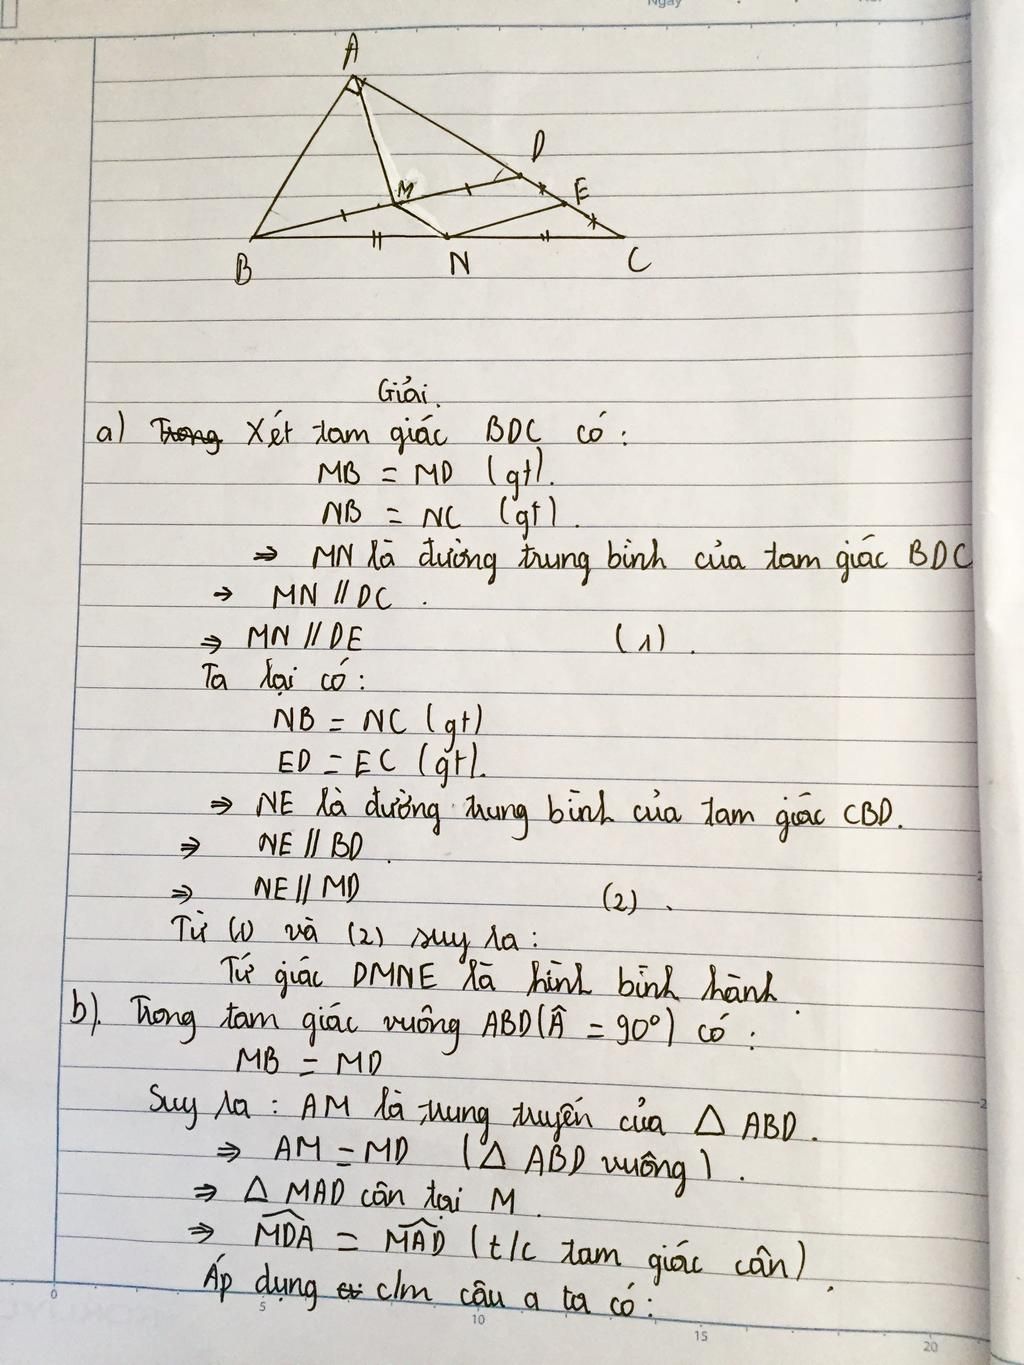 Ngày
A
D
M
E
B
N
C
Giải.
a) Trong Xét tam giác BDC có:
MB = MD (gt).
NB = NC (gt).
⇒ MN là đường trung bình của tam giác BDC
→ MN // DC.
⇒ MN // DE (1).
Ta lại có:
NB = NC (gt)
ED = EC (gt).
⇒ NE là đường trung bình của tam giác CBD.
⇒ NE // BD.
⇒ NE // MD (2).
Từ (1) và (2) suy ra:
Tứ giác DMNE là hình bình hành.
b). Trong tam giác vuông ABD (Â = 90°) có:
MB = MD
Suy ra: AM là trung truyến của △ ABD.
⇒ AM = MD (△ ABD vuông).
⇒ △ MAD cân tại M.
⇒ MDA = MAD (t/c tam giác cân).
Áp dụng c/m câu a ta có:
0 5 10 15 20